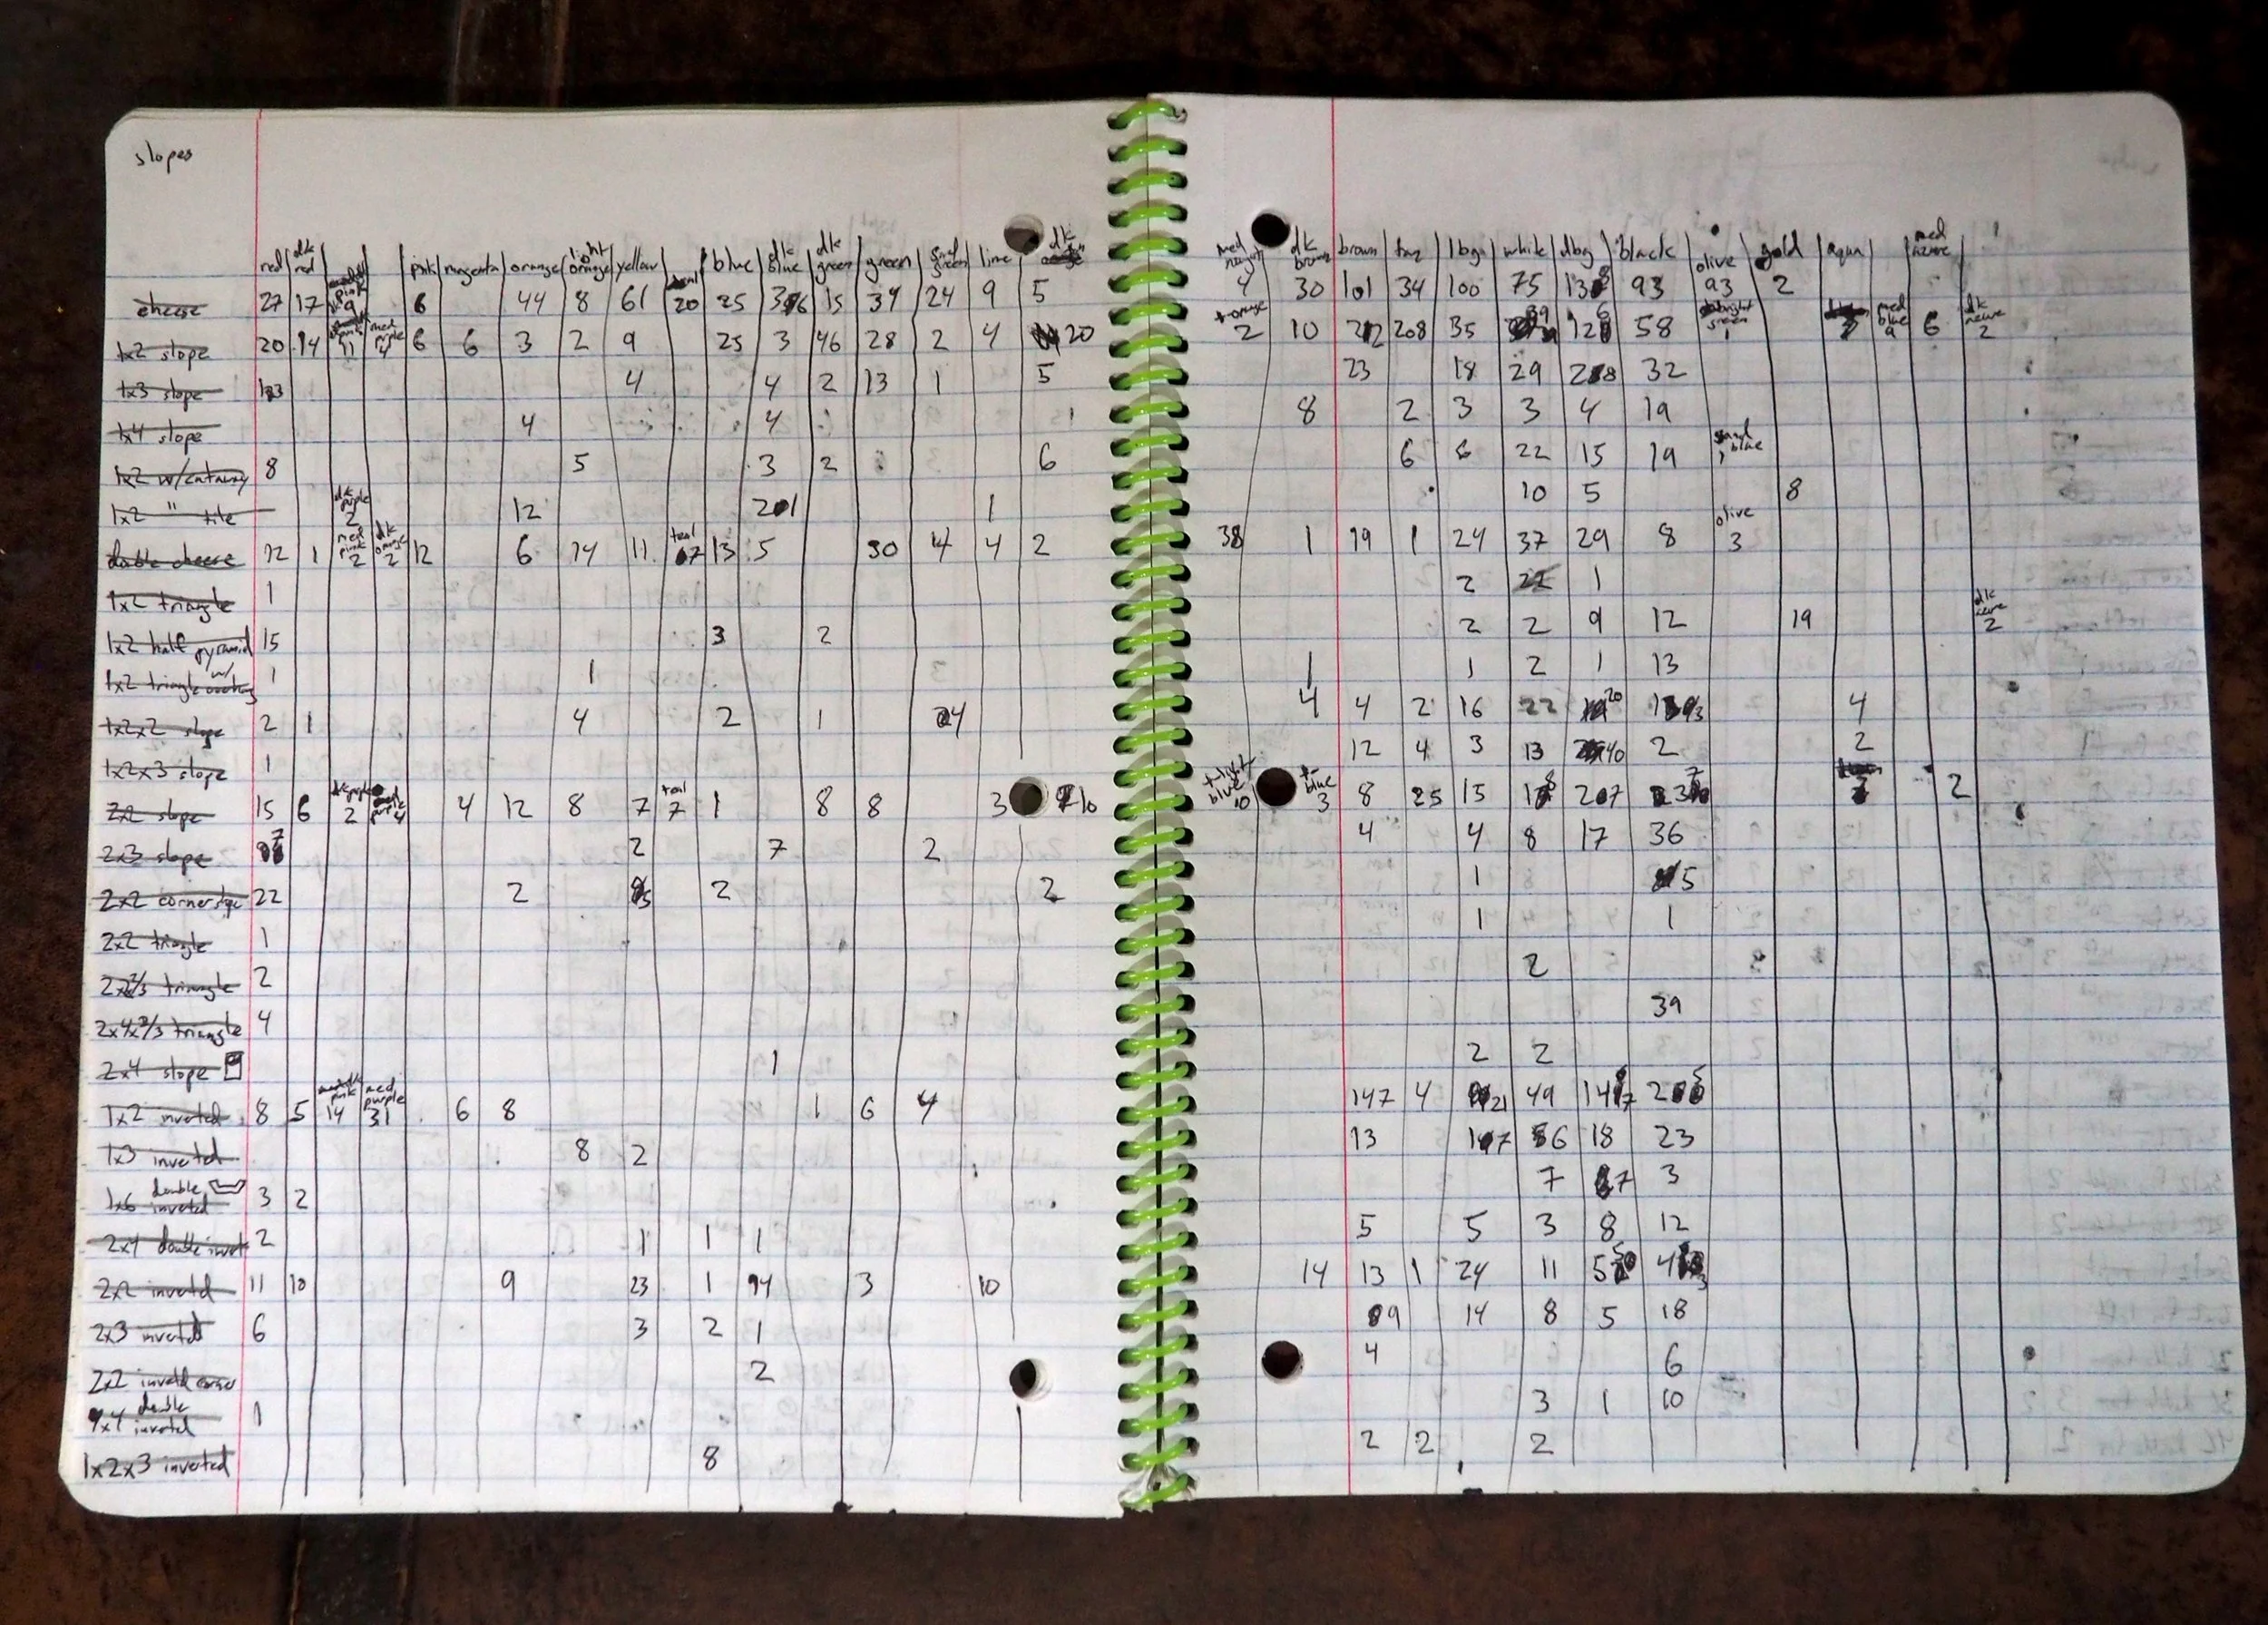 slopes
red dk red pink pink magenta orange light orange yellow teal blue dk blue dk green green sand green lime dk
cheese 27 17 9 6 44 8 61 20 25 15 34 24 9 5
1x2 slope 20 14 11 med purple 4 6 6 3 2 9 25 3 46 28 2 4 20
1x3 slope 4 4 2 13 1 5
1x4 slope 4 4
1x2 w/cutaway 8 5 3 2 6
1x2 " tile dk purple 2 12 1
double cheese 12 1 med pink 2 dk orange 2 12 6 14 11 teal 13 5 30 4 4 2
1x2 triangle 1
1x2 half pyramid 15 3 2
1x2 triangle w/ 1 1
1x2x2 slope 2 1 4 2 1 4
1x2x3 slope 1
2x2 slope 15 6 dk purple 2 med purple 4 4 12 8 7 teal 7 1 8 8 3 10
2x3 slope 7 2 7 2
2x2 corner slope 22 2 5 2 2
2x2 triangle 1
2x2/3 triangle 2
2x4x2/3 triangle 4
2x4 slope 1
1x2 inverted 8 5 pink 14 med purple 31 6 8 1 6 4
1x3 inverted 8 2
1x6 double inverted 3 2
2x4 double invert 2 1 1 1
2x2 inverted 11 10 9 23 1 14 3 10
2x3 inverted 6 3 2 1
2x2 inverted corner 2
4x4 double inverted 1
1x2x3 inverted 8
med nougat dk brown brown tan lbg white dbg black olive gold aqua med azure
4 30 101 34 100 75 93 93 2
t-orange 2 10 212 208 35 39 126 58 bright green 1 med blue 9 6 dk azure 2
23 18 29 32
8 2 3 3 4 19
6 6 22 15 19 sand blue 1
10 5 8
38 1 19 1 24 37 29 8 olive 3
2 1
2 2 9 12 19 dk azure 2
1 1 2 1 13
4 4 2 16 22 20 4
12 4 3 13 40 2 2
t-light blue 10 t-blue 3 8 25 15 2
4 4 8 17 36
1 5
1 1
2
39
2 2
147 4 21 49
13 18 23
7 7 3
5 5 3 8 12
14 13 1 24 11
9 14 8 5 18
4 6
3 1 10
2 2 2